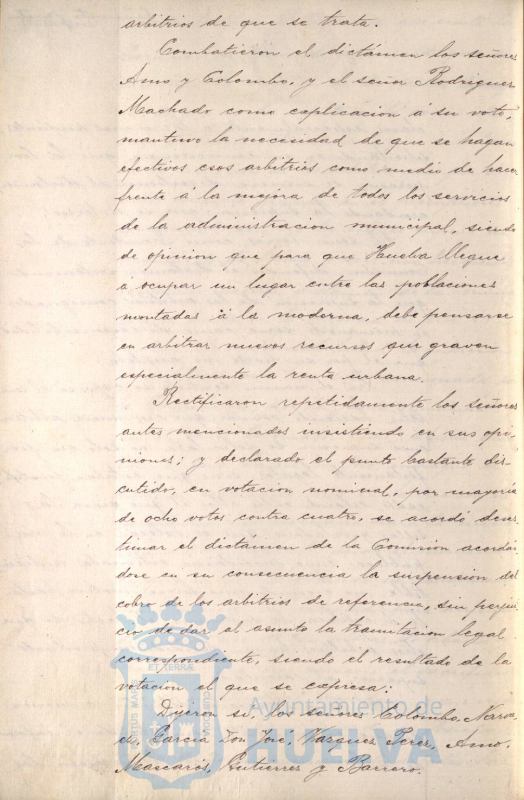 arbitrios de que se trata.
Combatieron el dictámen los señores
Amo y Colombo, y el señor Rodriguez
Machado como explicacion á su voto,
mantuvo la necesidad de que se hagan
efectivos esos arbitrios como medio de hacer
frente á la mejora de todos los servicios
de la administracion municipal, siendo
de opinion que para que Huelva llegue
á ocupar un lugar entre las poblaciones
montadas á la moderna, debe pensarse
en arbitrar nuevos recursos que graven
especialmente la renta urbana.
Rectificaron repetidamente los señores
antes mencionados insistiendo en sus opi-
niones; y declarado el punto bastante dis-
cutido, en votacion nominal, por mayoría
de ocho votos contra cuatro, se acordó deses-
timar el dictámen de la Comision acordán
dose en su consecuencia la suspension del
cobro de los arbitrios de referencia, sin perjui
cio de dar al asunto la tramitacion legal
correspondiente, siendo el resultado de la
votacion el que se expresa:
Dijeron si, los señores Colombo,
García Don José, Vazquez Perez, Amo,
Mascarós, Gutierrez y Barrero.
Ayuntamiento de
HUELVA